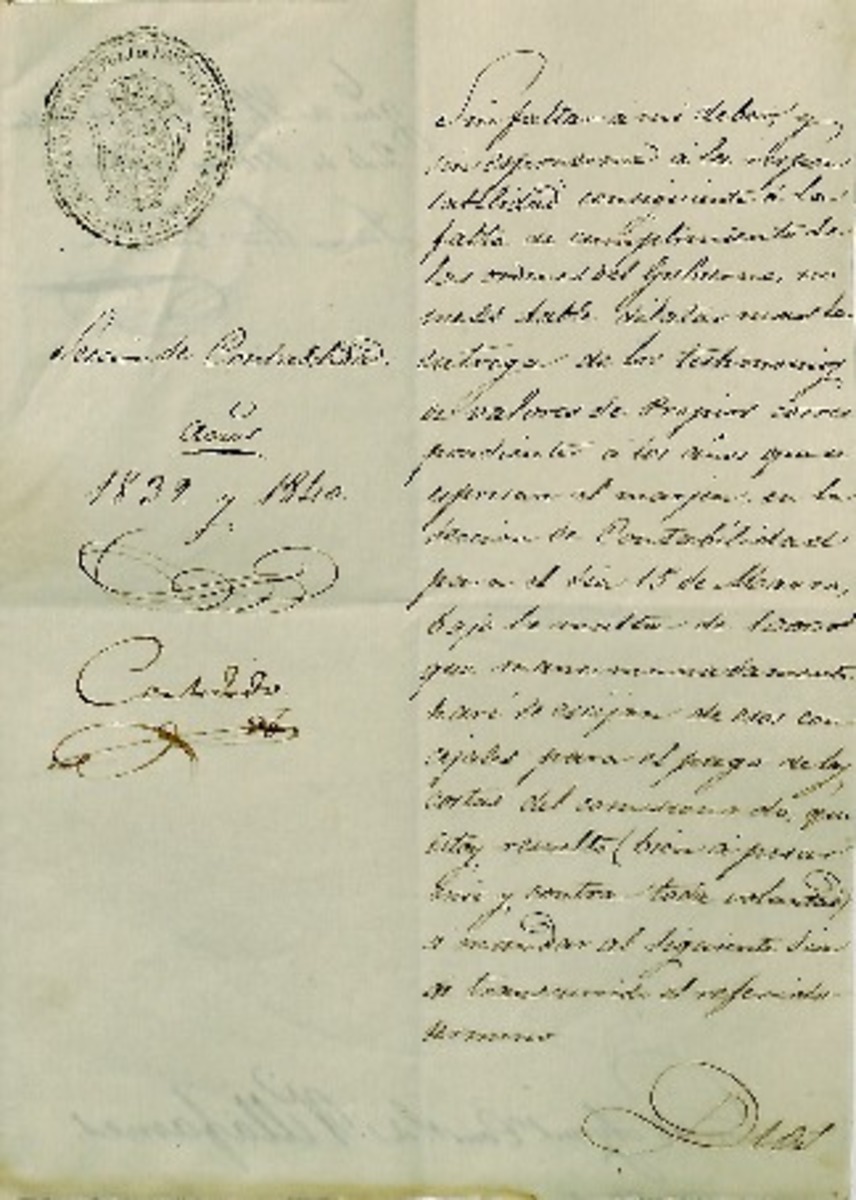 Seccion de Contabilidad.
años
1839 y 1840.
Contestado
Sin faltar á mi deber, y
sin esponerme á la respon
sabilidad consiguiente á la
falta de cumplimiento de
las ordenes del Gobierno, no
me es dable dilatar mas la
entrega de los testimonios
de valores de Propios corres
pondientes á los años que se
espresan al margen en la
Seccion de Contabilidad
para el dia 15 de
bajo la multa de
que mancomunadamente
haré se exijan de esos con
cejales para el pago de las
costas del comisionado, que
estoy resuelto (bien á pesar
mio y contra toda voluntad)
á mandar al siguiente dia
de transcurrido el referido
termino
Dios